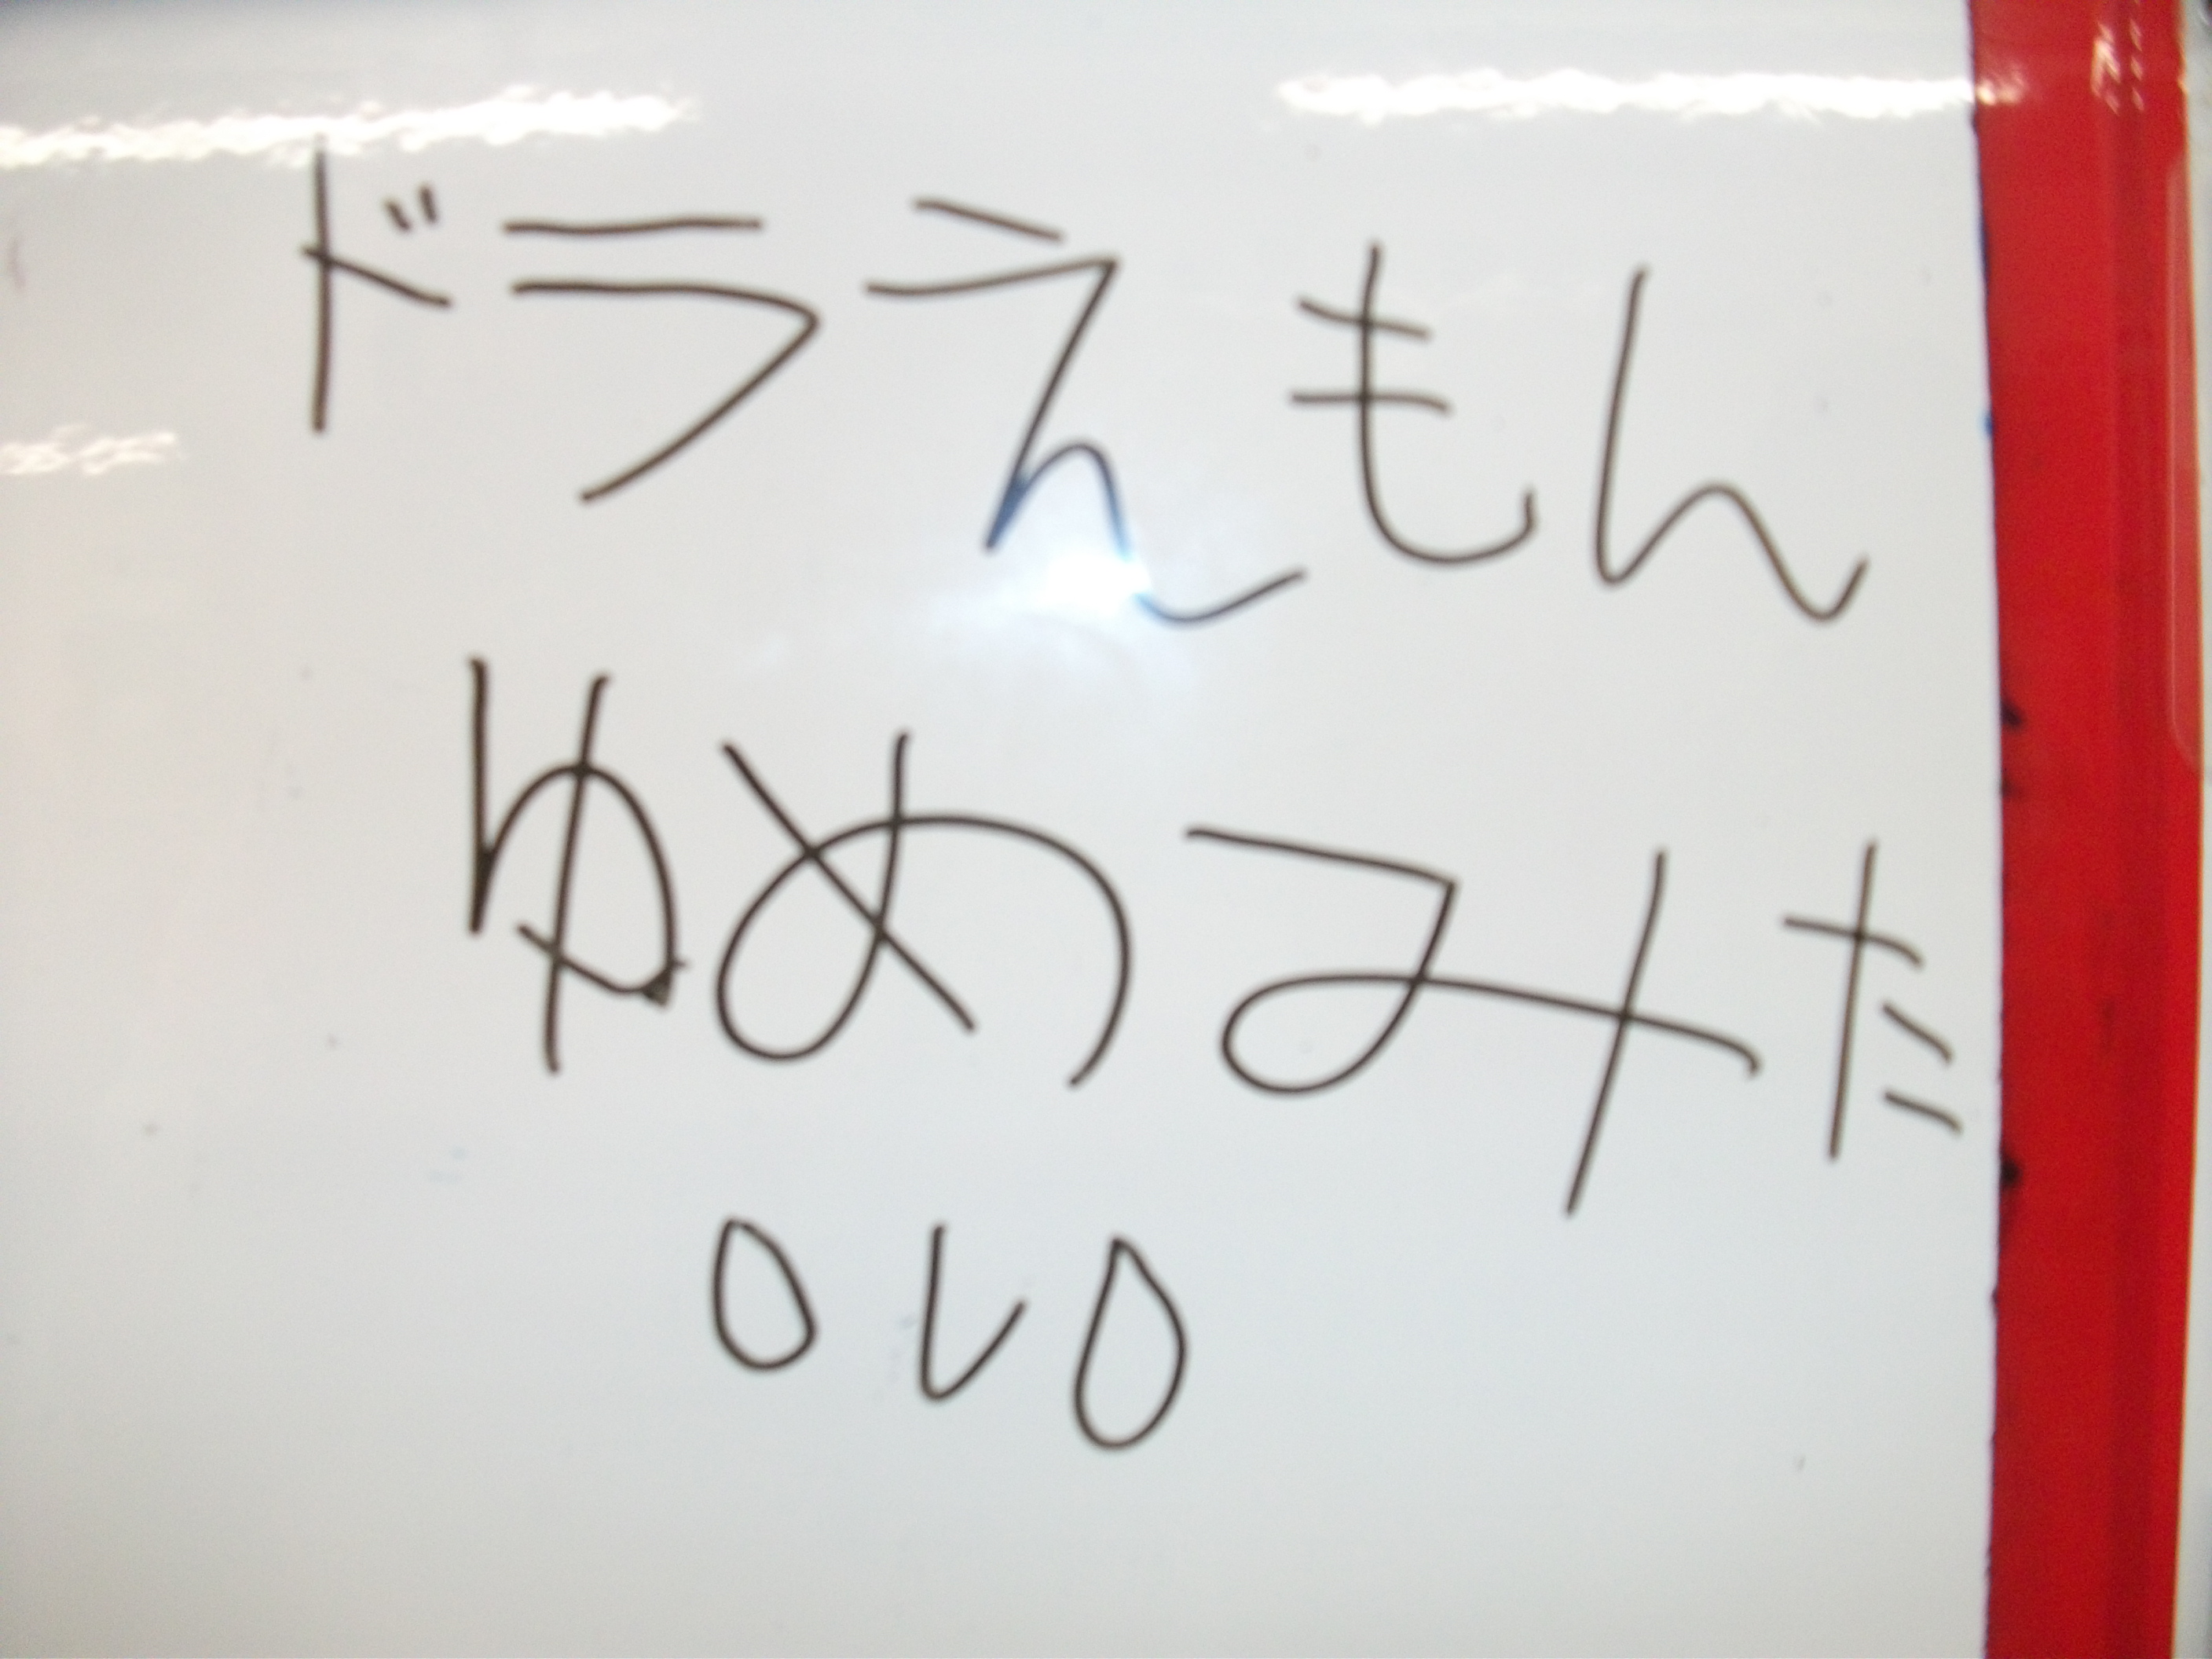 ドラえもん
ゆめみた
OLO